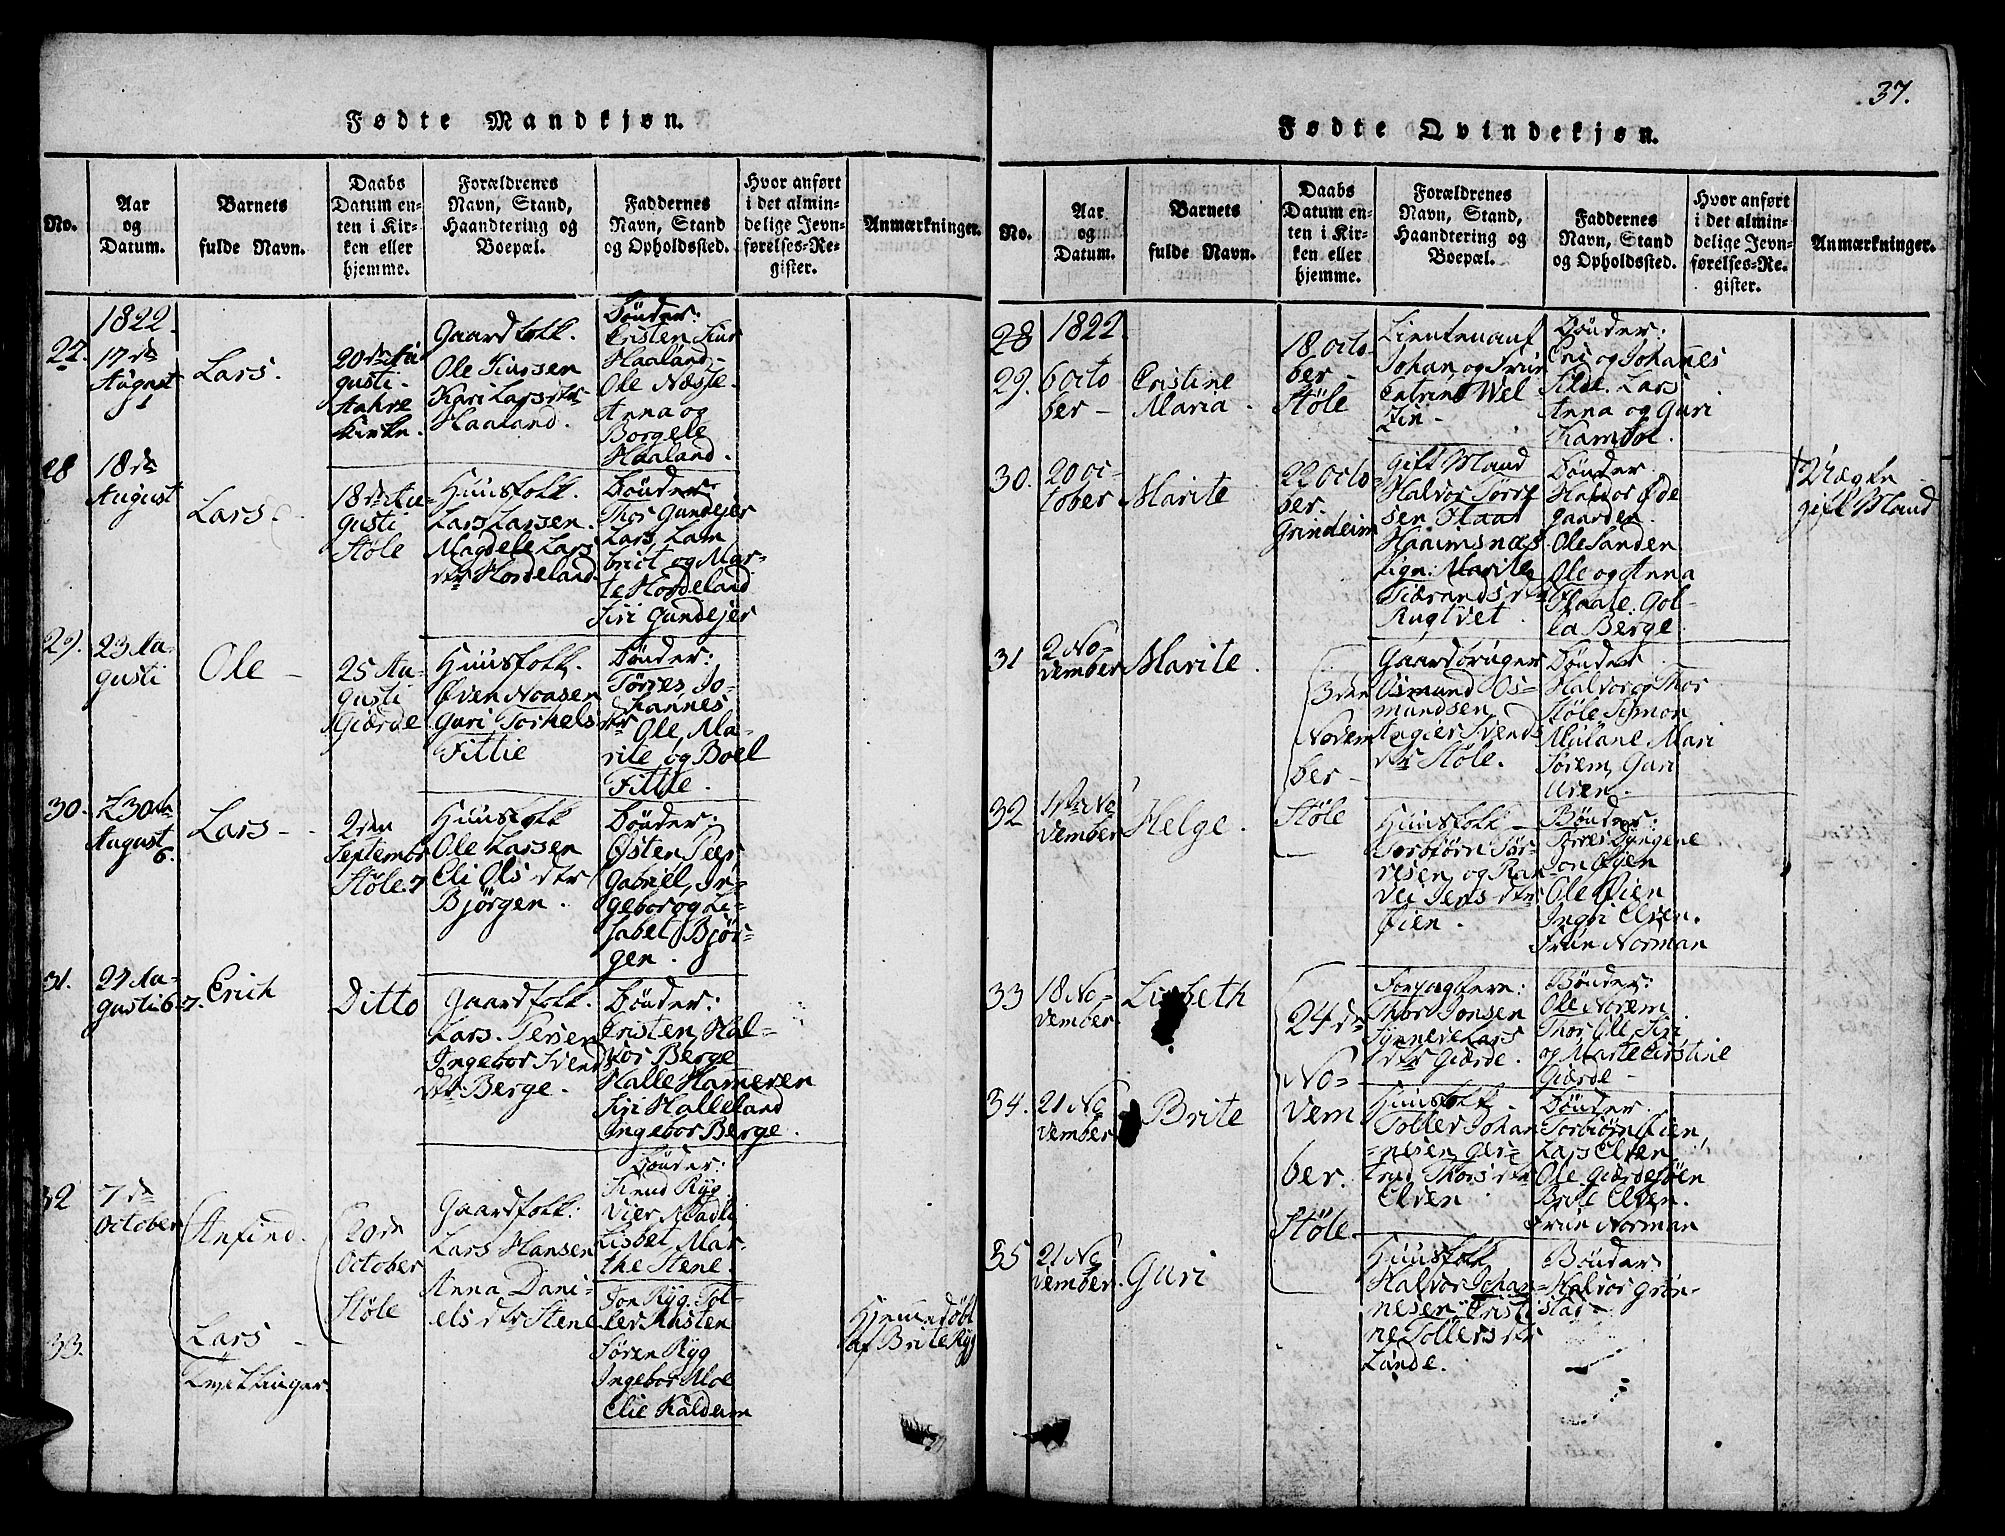 37.
Fødte Mandkjøn.
No.
Aar
og
Datum.
Barnets
fulde Navn.
Daabs
Datum en-
ten i Kir-
ken eller
hjemme.
Forældrenes
Navn, Stand,
Haandtering og
Boepæl.
Faddernes
Navn, Stand
og Opholdssted.
Hvor anført
i det almin-
delige Jevn-
førelses-Re-
gister.
Anmærkninger.
27.
1822.
17 de
August
Lars.
20 de Au
gusti.
Kirke.
Gaardfolk.
Ole
Kari Lars dtr
Haaland.
Bønder:
Cristen
Haaland
Ole Næsse.
Anna og
Borgele
Haaland.
28
18 de
August
Lars.
18 de Au-
gusti
Støle
Huusfolk.
Lars Larsen.
Magdele Lars
dtr Hordeland.
Bønder
Thor Gundejer
Lars, Lam
brict og Mar-
te Hordeland
Siri Gundejer
29.
23 Au-
gusti
Ole
25 Au-
gusti
Giærde
Huusfolk.
Øven Noasen
Guri Torkels dtr
Fittie
Bønder:
Tørres, Jo-
hannes
Ole, Ma-
rite og Boel
Fittie.
30.
30 de
August
Lars
2 den
Septembr
Støle
Huusfolk
Ole Larsen
Eli Ols dtr
Bjørgen.
Bønder:
Østen Peer
Gabriel, In-
gebor og Li-
sabet Bjør-
gen.
31.
27 Au-
gusti
Erich
Ditto
Gaardfolk.
Lars Persen
Ingebor Svends
dtr Berge.
Bønder:
Cristen, Hal-
vor Berge
Halle Hameren
Siri Halleland
Ingebor Berge.
32
7 de
October
Anfind.
20 de
October
Støle
Gaardfolk:
Lars Hansen
Anna Dani-
els dtr Stene
Bønder:
Knud Ryg
Lisbet Mar-
the Stene.
33.
Lars
Tvillinger.
Jon Ryg. Tol-
lev
Søren Ryg
Ingebor Moe
Elie Kaldem
Hjemmedøbt
af Brite Ryg
Fødte Qvindekjøn.
No.
Aar
og
Datum.
Barnets
fulde Navn.
Daabs
Datum en-
ten i Kir-
ken eller
hjemme.
Forældrenes
Navn, Stand,
Haandtering og
Boepæl.
Faddernes
Navn, Stand
og Opholdssted.
Hvor anført
i det almin-
delige Jevn-
førelses-Re-
gister.
Anmærkninger.
28
29.
1822.
6 Octo
ber
Cristine
Maria.
18 Octo-
ber
Støle
Lieutenant
Johan og Frue
Catrine Wel
Bønder:
og Johannes
Lars
Anna og Guri
30.
20 Oc-
tober
Marite
22 Octo-
ber.
Grindeim
Gift Mand
Halvor
Hammsnæs
Pign: Marite
Rugtvet
Bønder
Halvor Øde
gaarden.
Ole Sanden
Ole og Anna
la Berge
Uægte
gift Mand
31
2 No-
vember
Marite.
3 den
Novem
ber
Støle
Gaardbruger
Osmund Os-
mundsen
Svends
dtr Støle.
Bønder
Halvor og Thor
Støle Simon
Mari
Sørem, Guri
32
1ste No
vember
Helge.
Huusfolk
Torbjørn Tør-
resen, og Ran
vei Jens dtr
Øien.
Bønder:
Tørres
Jon Øyen
Ole Øien
Ingri Elven.
Frue Norman
33
18 No-
vember
Lisbeth
24 de
No-
vem
ber.
Støle
Thor Jonsen
Synneve Lars
dtr Giærde.
Bønder:
Ole Norem
Thor, Ole Siri
og Marte Cirstine
Giærde
34.
21 No
vember
Brite
Huusfolk
Tollev Johan
nesen Ger-
trud Thors dtr
Elven
Bønder
Torbiørn Øien,
Lars Elven
Ole
Brite Elven.
Frue Norman
35
21 No
vember
Guri
Huusfolk
Halvor Johan-
nesen Cristi
ne Tollevs dtr
Lunde.
Bønder
Halvor Grøn-
stad